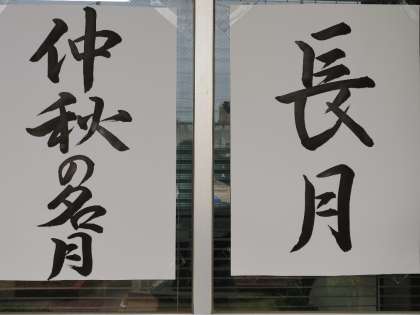 長月
仲秋の名月